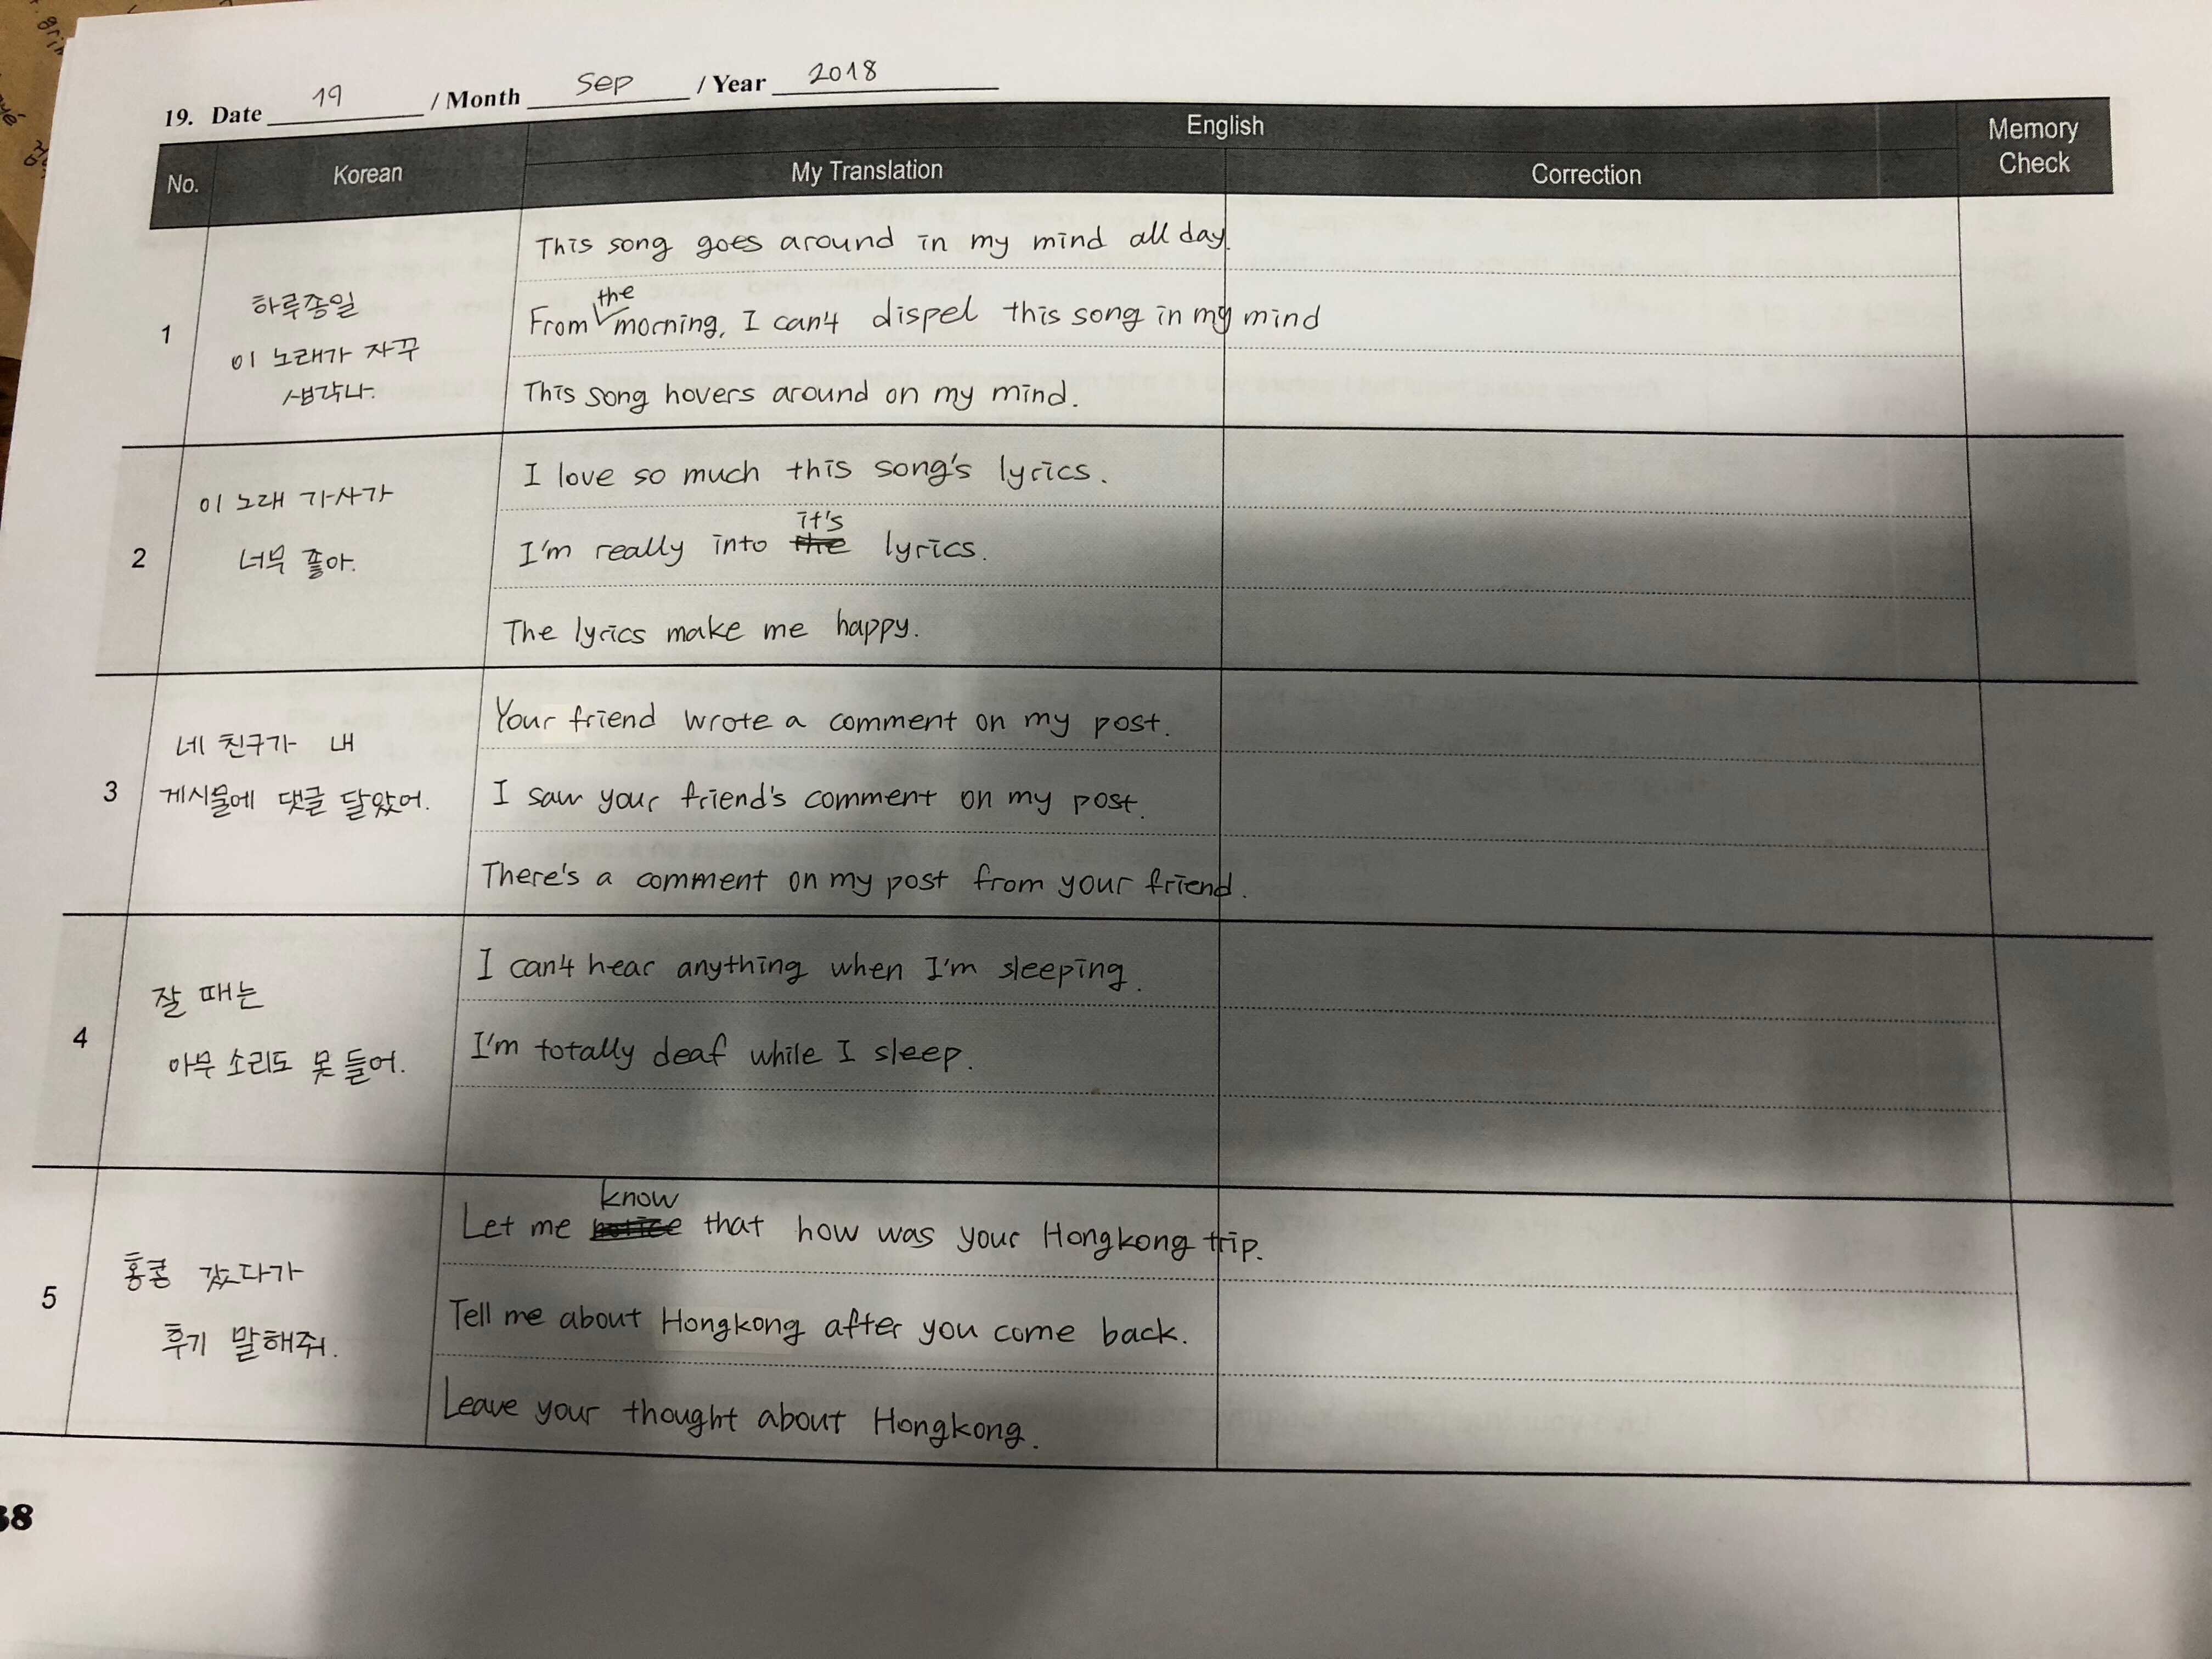 19. Date 19 / Month Sep / Year 2018
No.
Korean
English
My Translation
Correction
Memory Check
1
하루종일
이 노래가 자꾸
생각나.
This song goes around in my mind all day.
From the morning, I can't dispel this song in my mind
This song hovers around on my mind.
2
이 노래 가사가
너무 좋아.
I love so much this song's lyrics.
I'm really into the it's lyrics.
The lyrics make me happy.
3
네 친구가 내
게시물에 댓글 달았어.
Your friend wrote a comment on my post.
I saw your friend's comment on my post.
There's a comment on my post from your friend.
4
잘 때는
아무 소리도 못 들어.
I can't hear anything when I'm sleeping.
I'm totally deaf while I sleep.
5
홍콩 갔다가
후기 말해줘.
Let me notice know that how was your Hongkong trip.
Tell me about Hongkong after you come back.
Leave your thought about Hongkong.
38